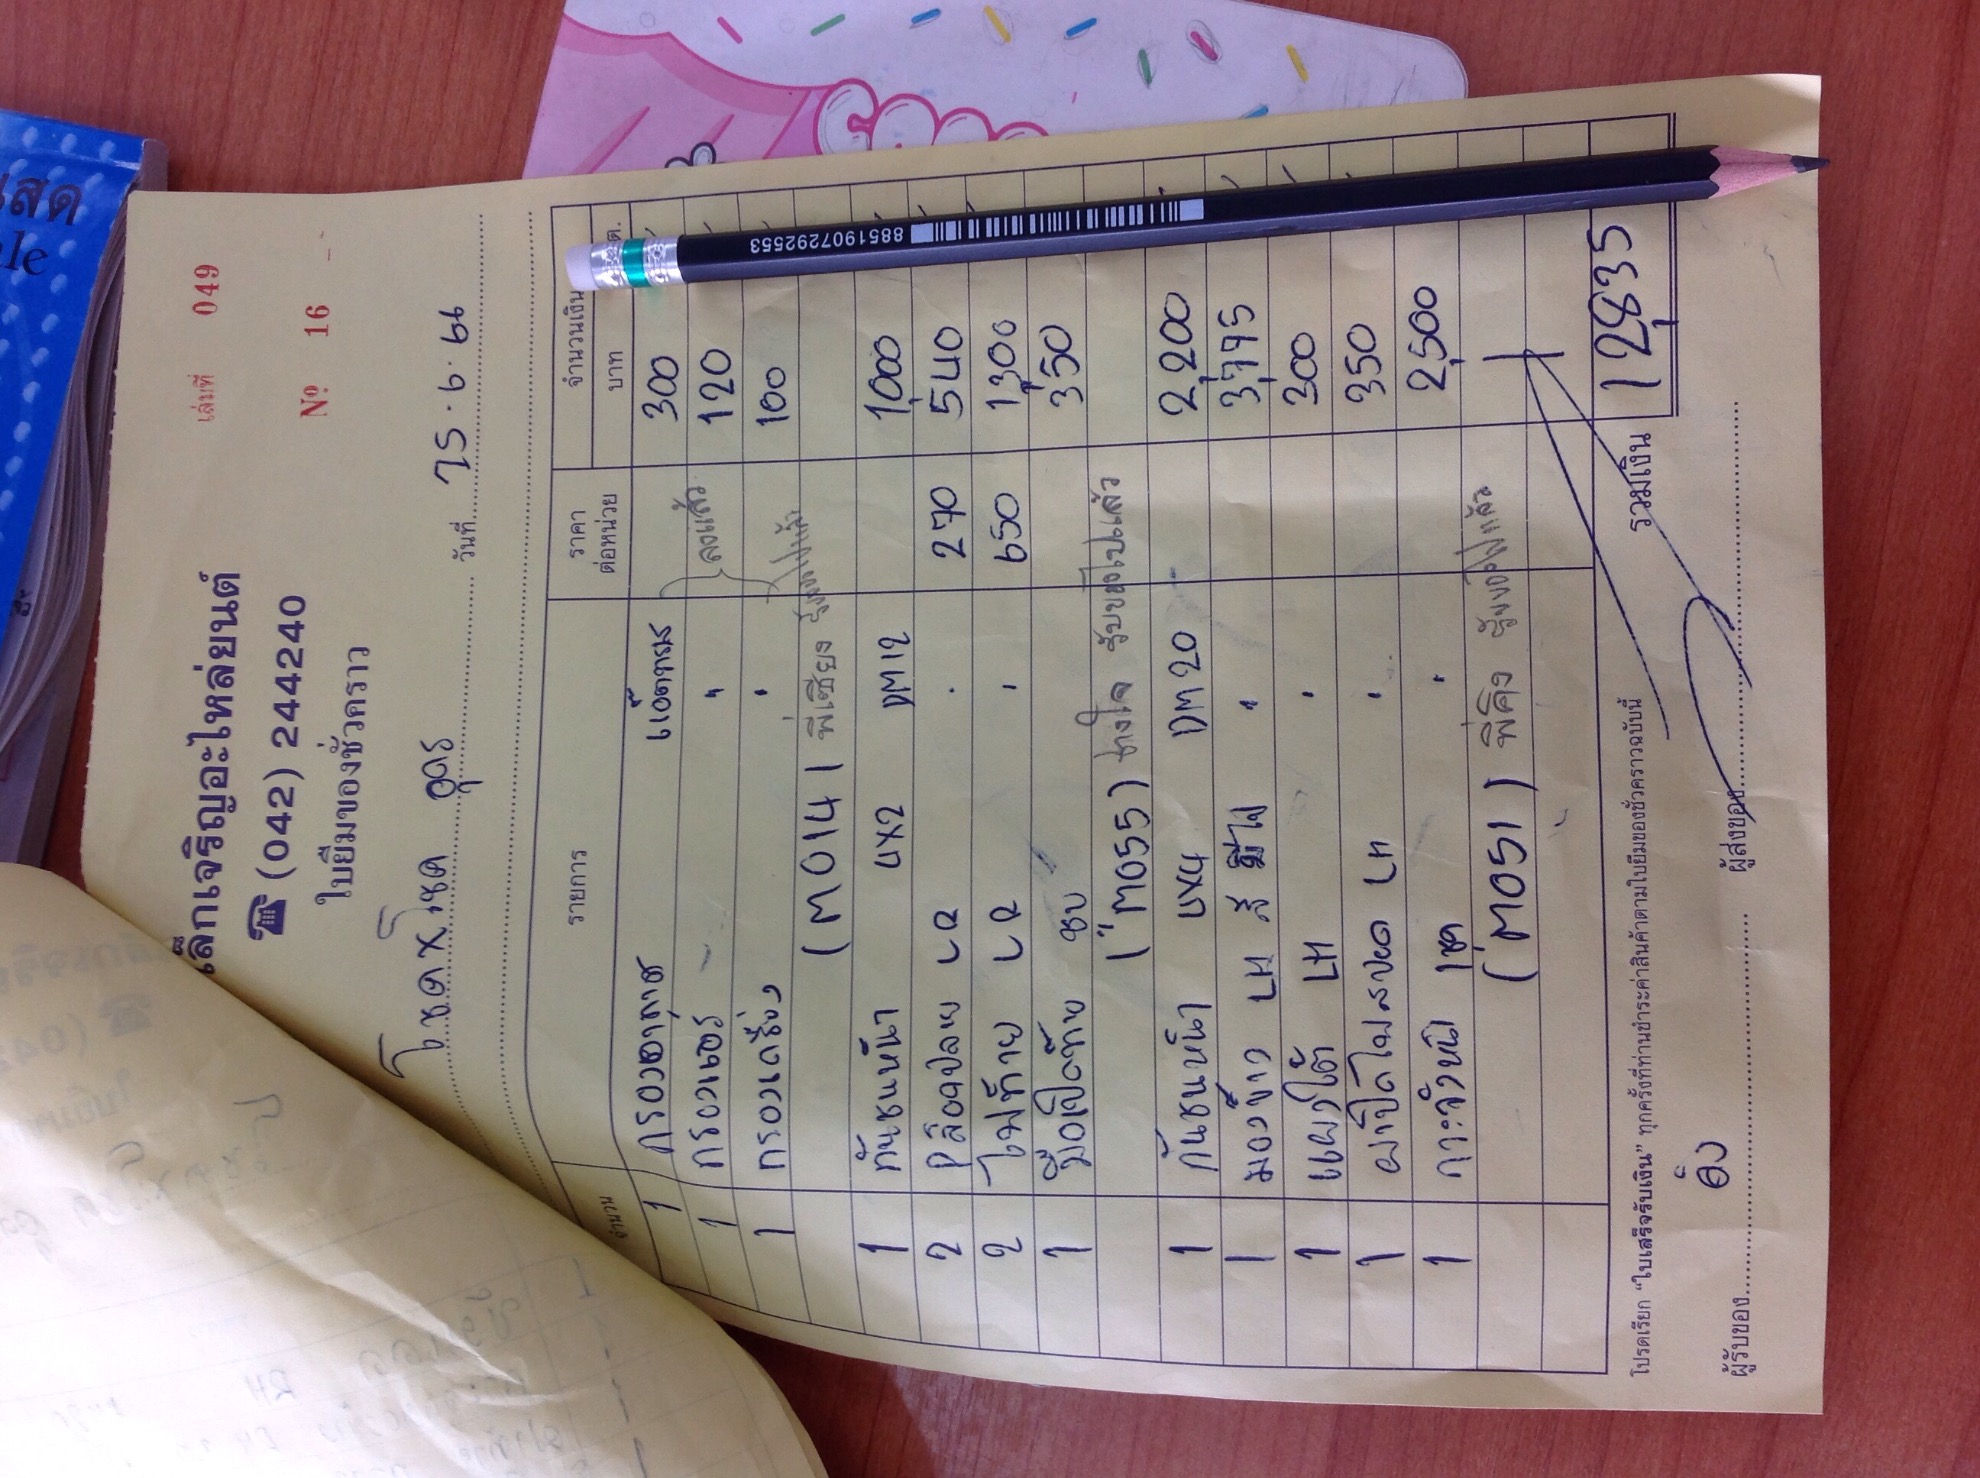 สด
le
เล่มที่ 049
เล็กเจริญอะไหล่ยนต์
☎ (042) 244240
Nº 16
ใบยืมของชั่วคราว
โชคXโชค อุดร วันที่ 15.6.66
จำนวน รายการ ราคาต่อหน่วย จำนวนเงิน
บาท ต.
1 กรองอากาศ 300
1 กรองเซอร์ " 120 ลงแล้ว
1 กรองเครื่อง " 100
(M014) พี่เชียง รับของไปแล้ว
1 กันชนหน้า 4X2 DM12 1,000
2 LR " 270 540
2 ไฟท้าย LR " 650 1,300
1 มือเปิดท้าย ชบ 350
(M055) ช่างใจ รับของไปแล้ว
1 กันชนหน้า 4X4 DM20 2,200
1 มองข้าง LH สี มีไฟ " 3,775
1 LH " 300
1 LH " 350
1 กระจังหน้า " 2,500
(M051) พี่คิง รับของไปแล้ว
รวมเงิน 12,835
โปรดเรียก "ใบเสร็จรับเงิน" ทุกครั้งที่ท่านชำระค่าสินค้าตามใบยืมของชั่วคราวฉบับนี้
ผู้รับของ ผู้ส่งของ
8851907292553